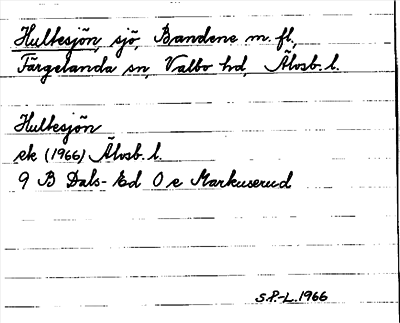 Hultesjön, sjö, Bandene m. fl.,
Färgelanda sn, Valbo hd, Älvsb. l.
Hultesjön
ek (1966) Älvsb. l.
9 B Dals-Ed 0 e Markuserud
S.P.-L. 1966